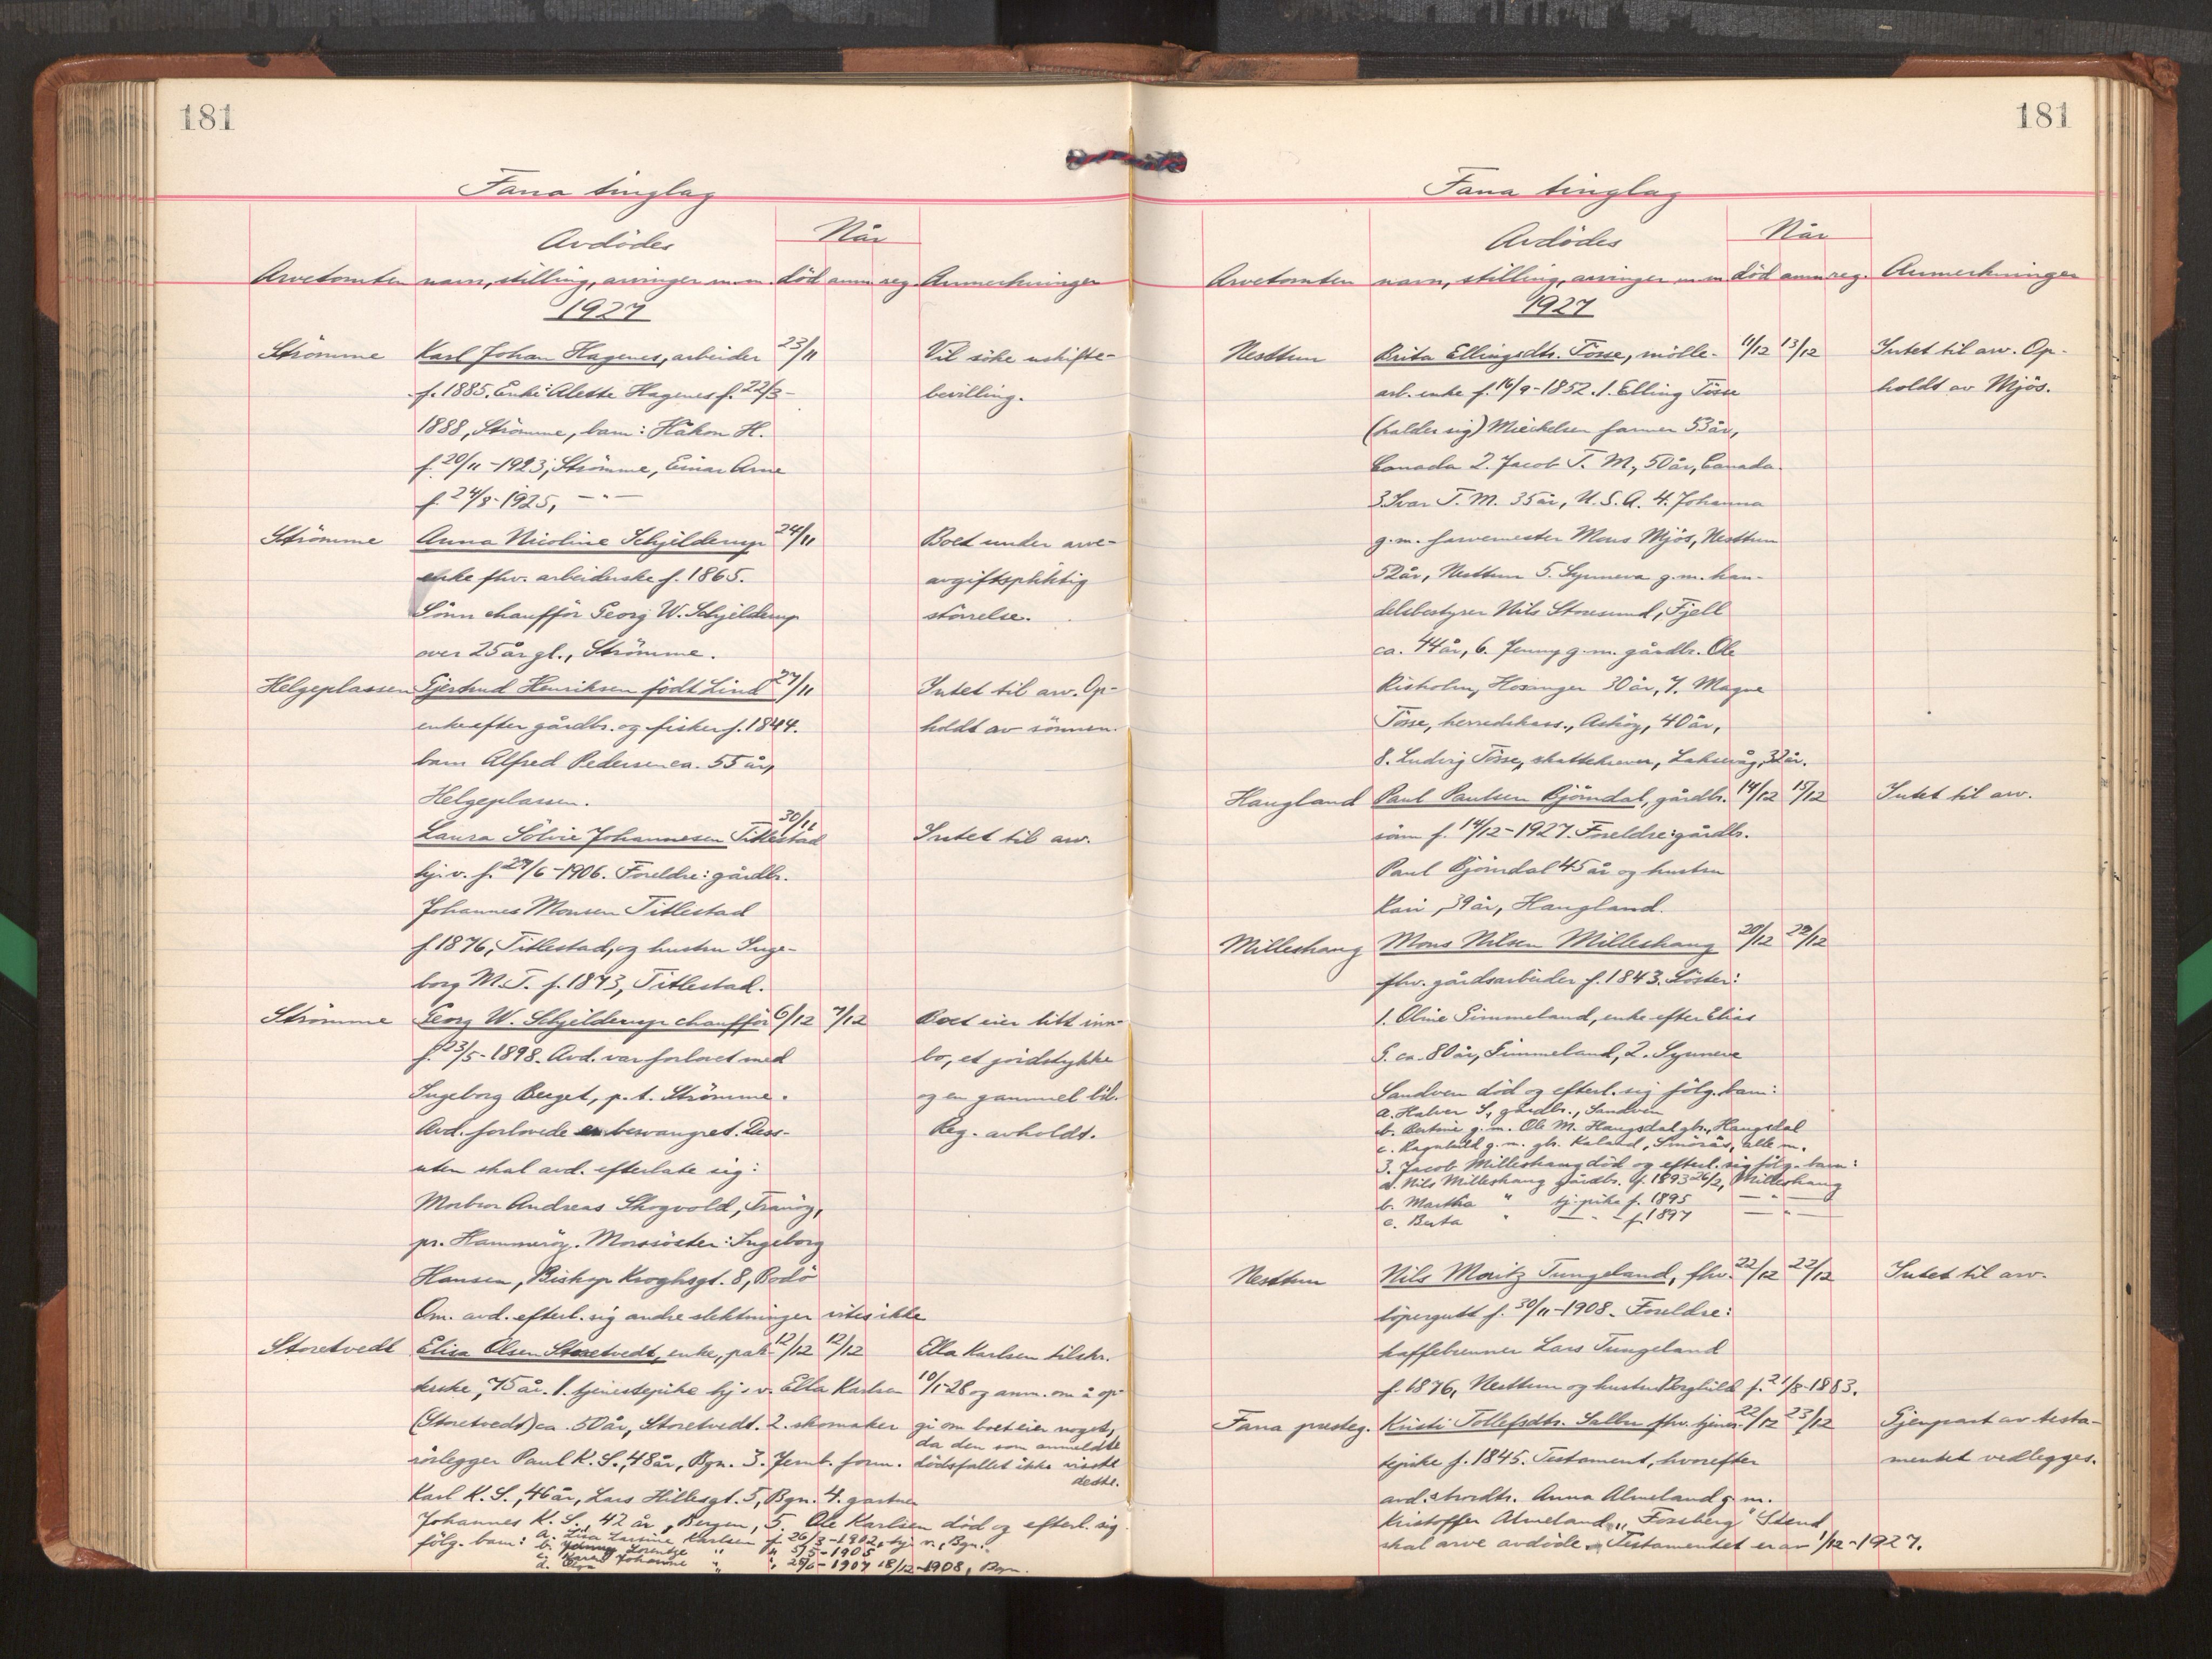 181
Fana tinglag
Avdödes
Når
Arvetomten navn, stilling, arvinger m.m. död anm. reg. Anmerkninger
1927
Strömme Karl Johan Hagenes, arbeider 23/11 Vil söke uskifte-
f. 1885. Enke: Alette Hagenes f. 22/3- bevilling.
1888, Strömme, barn: Håkon H.
f. 20/11-1923, Strömme, Einar Arne
f. 24/8-1925, -"-
Strömme Anna Nicoline Schjelderup 24/11 Boet under arve-
enke fhv. arbeiderske f. 1865. avgiftspliktig
Sönn chaufför Georg W. Schjelderup störrelse.
over 25 år gl., Strömme.
Helgeplassen Gjertrud Henriksen födt Lind 27/11 Intet til arv. Op-
enke efter gårdbr. og fisker f. 1844. holdt av sönnen.
barn Alfred Pedersen ca. 55 år,
Helgeplassen.
Laura Sölvie Johannesen Titlestad 30/11 Intet til arv.
hj. v. f. 27/6-1906. Foreldre: gårdbr.
Johannes Monsen Titlestad
f. 1876, Titlestad, og hustru Inge-
borg M. T. f. 1873, Titlestad.
Strömme Georg W. Schjelderup chaufför 6/12 7/12 Boet eier litt inn-
f. 23/5-1898. Avd. var forlovet med bo, et jordstykke
Ingeborg Berget, p.t. Strömme. og en gammel bil.
Avd. forlovede er besvangret. Dess- Reg. avholdt.
uten skal avd. efterlate sig:
Morbror Andreas Skogvold, Tranöy,
pr. Hammeröy. Morssöster: Ingeborg
Hansen, Biskop Kroghsgt. 8, Bodö
Om avd. efterl. sig andre slektninger vites ikke
Storetvedt Elisa Olsen Storetvedt, enke, pak- 12/12 12/12 Ella Karlsen tilskr.
kerske, 75 år. 1. tjenestepike hj. v. Ella Karlsen 10/1-28 og anm. om å op-
(Storetvedt) ca. 50 år, Storetvedt. 2. skomaker gi om boet eier noget,
da den som anmeldte
rörlegger Paul K. S., 48 år, Bgn. 3. Jernb. form. dödsfallet ikke visste
dette.
Karl K. S., 46 år, Lars Hillesgt. 5, Bgn. 4. gartner
Johannes K. S., 42 år, Bergen, 5. Ole Karlsen död og efterl. sig
fölg. barn: a. Lisa Lavine Karlsen f. 26/3-1902, hj. v., Bgn.
b. Jenny Lorentze " " 5/5-1905
c. Karen Johanne " " 25/6-1907
d. Olga 18/12-1908, Bgn.
181
Fana tinglag
Avdödes
Når
Arvetomten navn, stilling, arvinger m.m. död anm. reg. Anmerkninger
1927
Nesttun Brita Ellingsdtr. Tösse, mölle- 11/12 13/12 Intet til arv. Op-
arb. enke f. 16/9-1852. 1. Elling Tösse holdt av Mjös.
(kalder sig) Mickelsen farmer 53 år,
Canada 2. Jacob T. M., 50 år, Canada
3. Ivar T. M. 35 år, U.S.A. 4. Johanna
g.m. farvemester Mons Mjös, Nesttun
52 år, Nesttun 5. Synneva g.m. han-
delsbestyrer Nils Storesund, Fjell
ca. 44 år, 6. Jenny g.m. gårdbr. Ole
Risholm, Hosanger 30 år, 7. Magne
Tösse, herredskass., Asköy, 40 år,
8. Ludvig Tösse, skattekrever, Laksevåg, 32 år.
Haugland Paul Paulsen Björndal, gårdbr. 14/12 15/12 Intet til arv.
sönn f. 14/12-1927. Foreldre: gårdbr.
Paul Björndal 45 år og hustru
Kari, 39 år, Haugland.
Milleshaug Mons Nilsen Milleshaug 20/12 22/12
fhv. gårdsarbeider f. 1843. Söster:
1. Oline Simmeland, enke efter Elias
S. ca. 80 år, Simmeland, 2. Synneve
Sandven död og efterl. sig fölg. barn:
a. Halvor S., gårdbr., Sandven
b. Bertine g.m. Ole M. Haugsdal gbr., Haugsdal
c. Ragnhild g.m. gbr. Kaland, Smörås, alle m.
3. Jacob Milleshaug död og efterl. sig fölg. barn:
a. Nils Milleshaug gårdbr. f. 1893 26/2, Milleshaug
b. Martha " tj. pike f. 1895 -"-
c. Berta " -"- f. 1897 -"-
Nesttun Nils Moritz Tungeland, fhv. 22/12 22/12 Intet til arv.
löpergutt f. 30/11-1908. Foreldre:
kaffebrenner Lars Tungeland
f. 1876, Nesttun og hustru Borghild f. 21/8-1883.
Fana presteg. Kristi Tollefsdtr. Salbu fhv. tjenes- 22/12 23/12 Gjenpart av testa-
tepike f. 1845. Testament, hvorefter mentet vedlegges.
avd. brordtr. Anna Almeland g.m.
Kristoffer Almeland, "Fossberg" Stend
skal arve avdöde. Testamentet er av 1/12-1927.